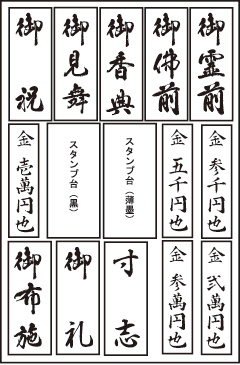 御霊前
御佛前
御香典
御見舞
御祝
金参千円也
金五千円也
スタンプ台(薄墨)
スタンプ台(黒)
金壱萬円也
金弐萬円也
金参萬円也
寸志
御礼
御布施